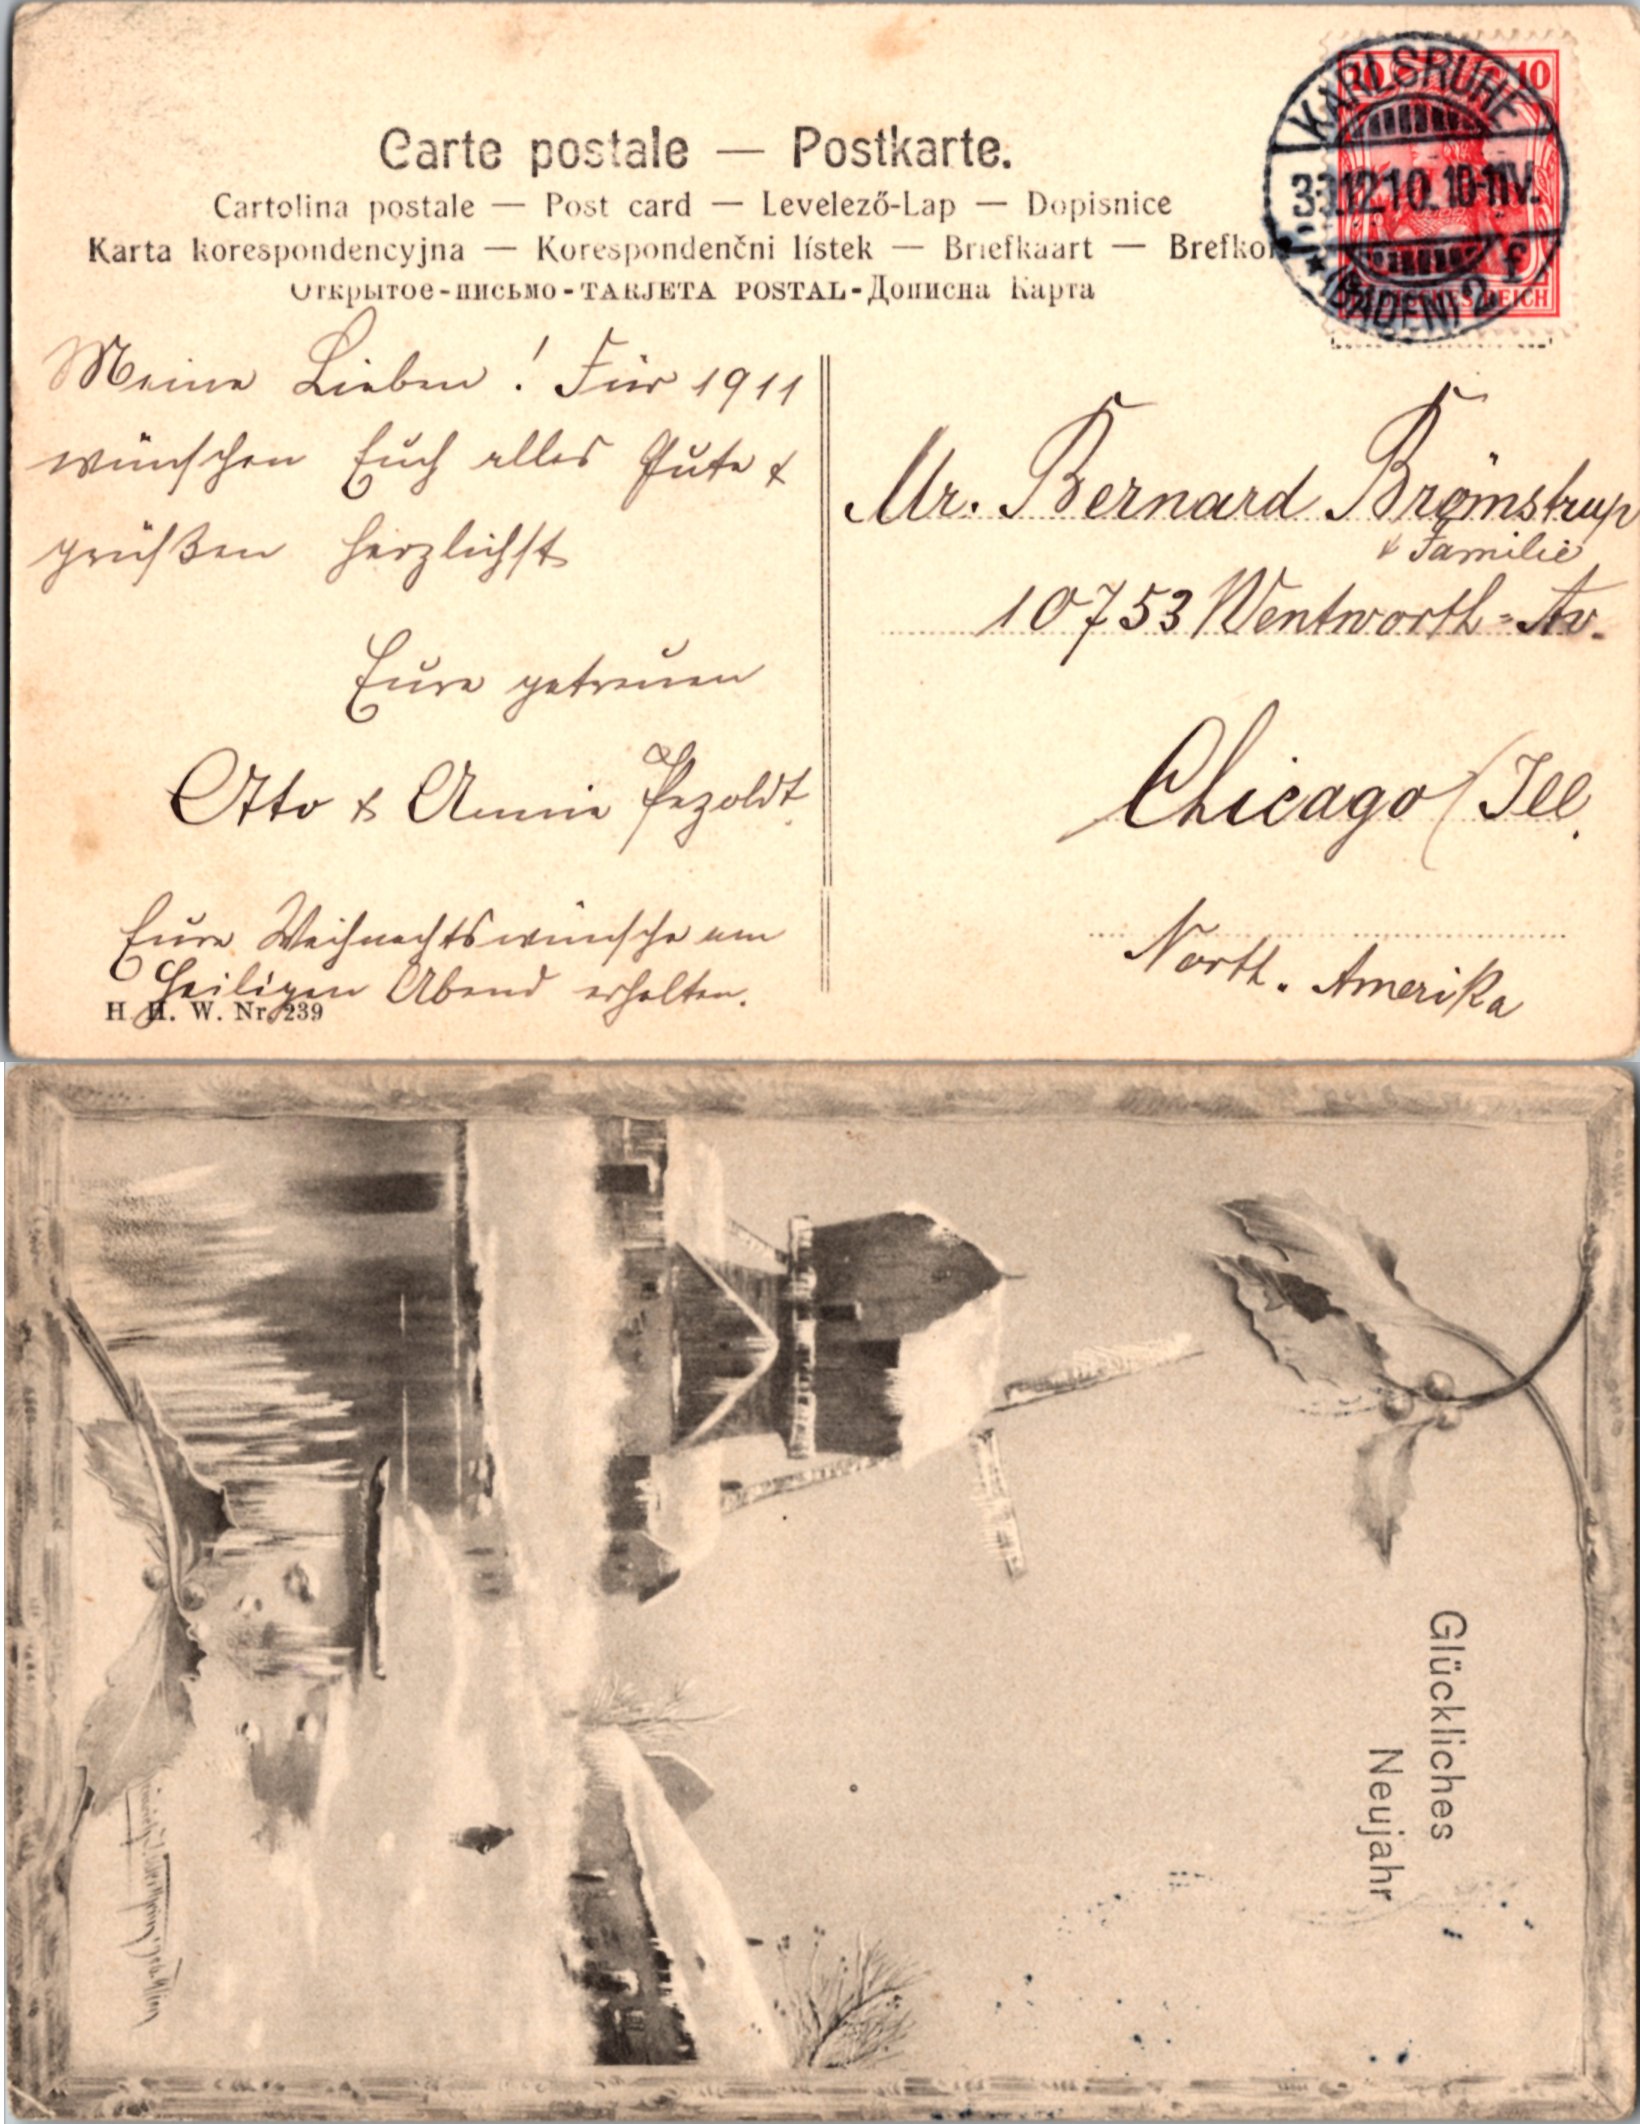 Carte postale — Postkarte.
Cartolina postale — Post card — Levelező-Lap — Dopisnice
Karta korespondencyjna — Korespondenčni lístek — Briefkaart — Brefkor
Открытое-письмо-TARJETA POSTAL-Дописна Карта
10 10
KARLSRUHE
12.10.10-11V.
* (BADEN) 2 f
REICH
Meine Lieben! Für 1911
wünschen Euch alles Gute &
grüßen herzlichst
Eure getreuen
Otto & Annie Pezoldt.
Eure Weihnachtswünsche am
Heiligen Abend erhalten.
H. H. W. Nr. 239
Mr. Bernard Brömstrup
& Familie
10753 Wentworth-Av.
Chicago / Ill.
North. Amerika
Glückliches
Neujahr